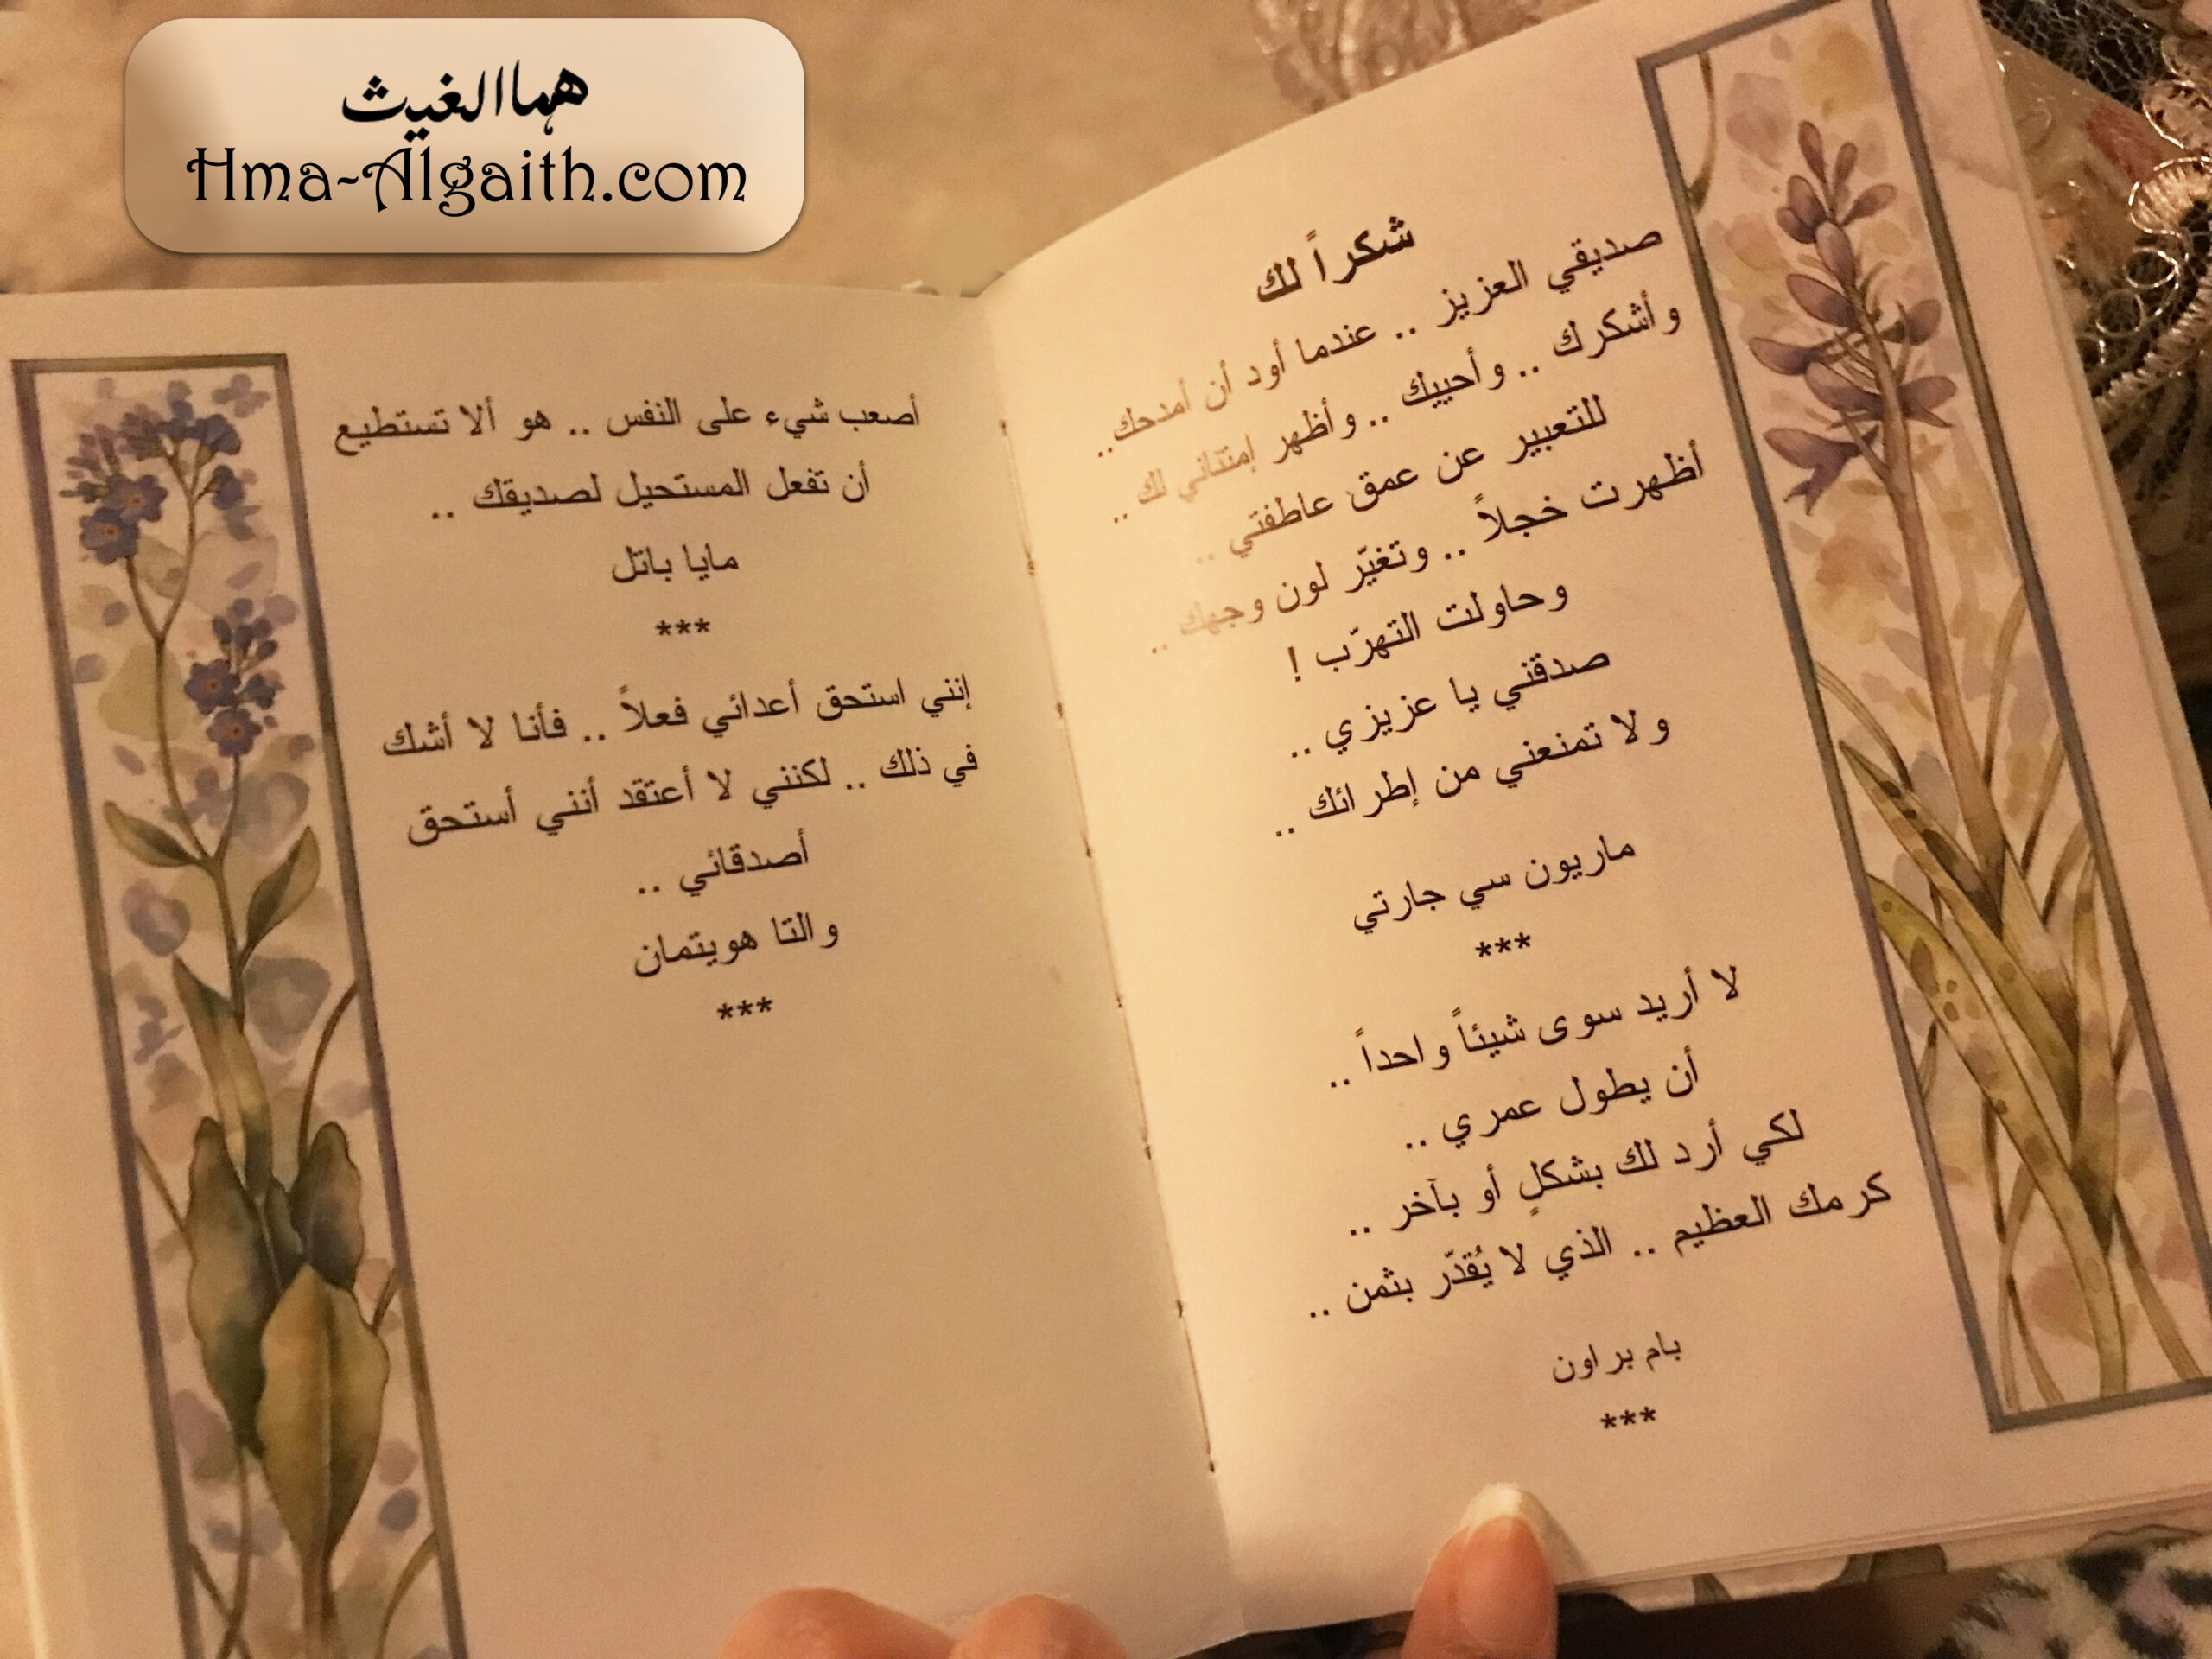 هما الغيث
Hma-Algaith.com
شكراً لك
صديقي العزيز .. عندما أود أن أمدحك ..
وأشكرك .. وأحييك .. وأظهر إمتناني لك ..
للتعبير عن عمق عاطفتي ..
أظهرت خجلاً .. وتغيّر لون وجهك ..
وحاولت التهرّب !
صدقني يا عزيزي ..
ولا تمنعني من إطرائك ..
ماريون سي جارتي
***
لا أريد سوى شيئاً واحداً ..
أن يطول عمري ..
لكي أرد لك بشكلٍ أو بآخر ..
كرمك العظيم .. الذي لا يُقدّر بثمن ..
بام براون
***
أصعب شيء على النفس .. هو ألا تستطيع
أن تفعل المستحيل لصديقك ..
مايا باتل
***
إنني استحق أعدائي فعلاً .. فأنا لا أشك
في ذلك .. لكنني لا أعتقد أنني أستحق
أصدقائي ..
والتا هويتمان
***